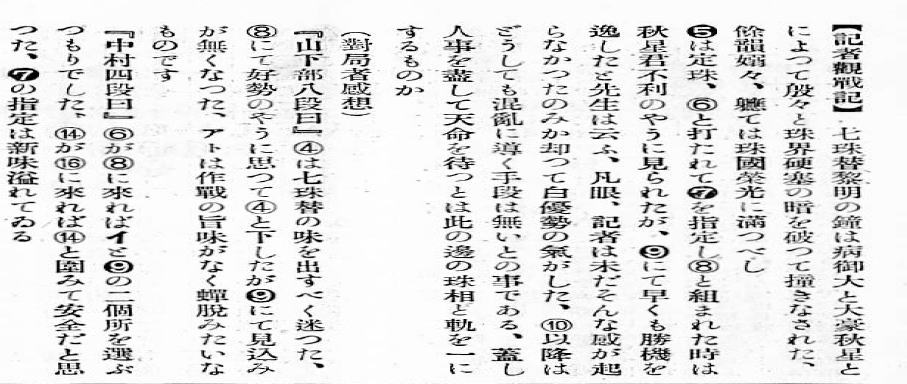 【記者觀戰記】　七珠替黎明の鐘は病御大と大豪秋星と
によつて殷々と珠界硬塞の暗を破つて撞きなされた、
餘韻嫋々、軈ては珠國榮光に滿つべし
❺は定珠、⑥と打たれて❼を指定し⑧と組まれた時は
秋星君不利のやうに見られたが、❾にて早くも勝機を
逸したと先生は云ふ、凡眼、記者は未だそんな感が起
らなかつたのみか却つて白優勢の氣がした、⑩以降は
どうしても混亂に導く手段は無いとの事である、蓋し
人事を盡して天命を待つとは此の邊の珠相と軌を一に
するものか
（對局者感想）
『山下部八段曰』④は七珠替の味を出すべく迷つた、
⑧にて好勢のやうに思つて④と下したが❾にて見込み
が無くなつた、アトは作戰の旨味がなく蟬脫みたいな
ものです
『中村四段曰』⑥が⑧に來ればイと❾の二個所を選ぶ
づもりでした、⑭が⑯に來れば⑭と圍みて安全だと思
つた、❼の指定は新味溢れてゐる